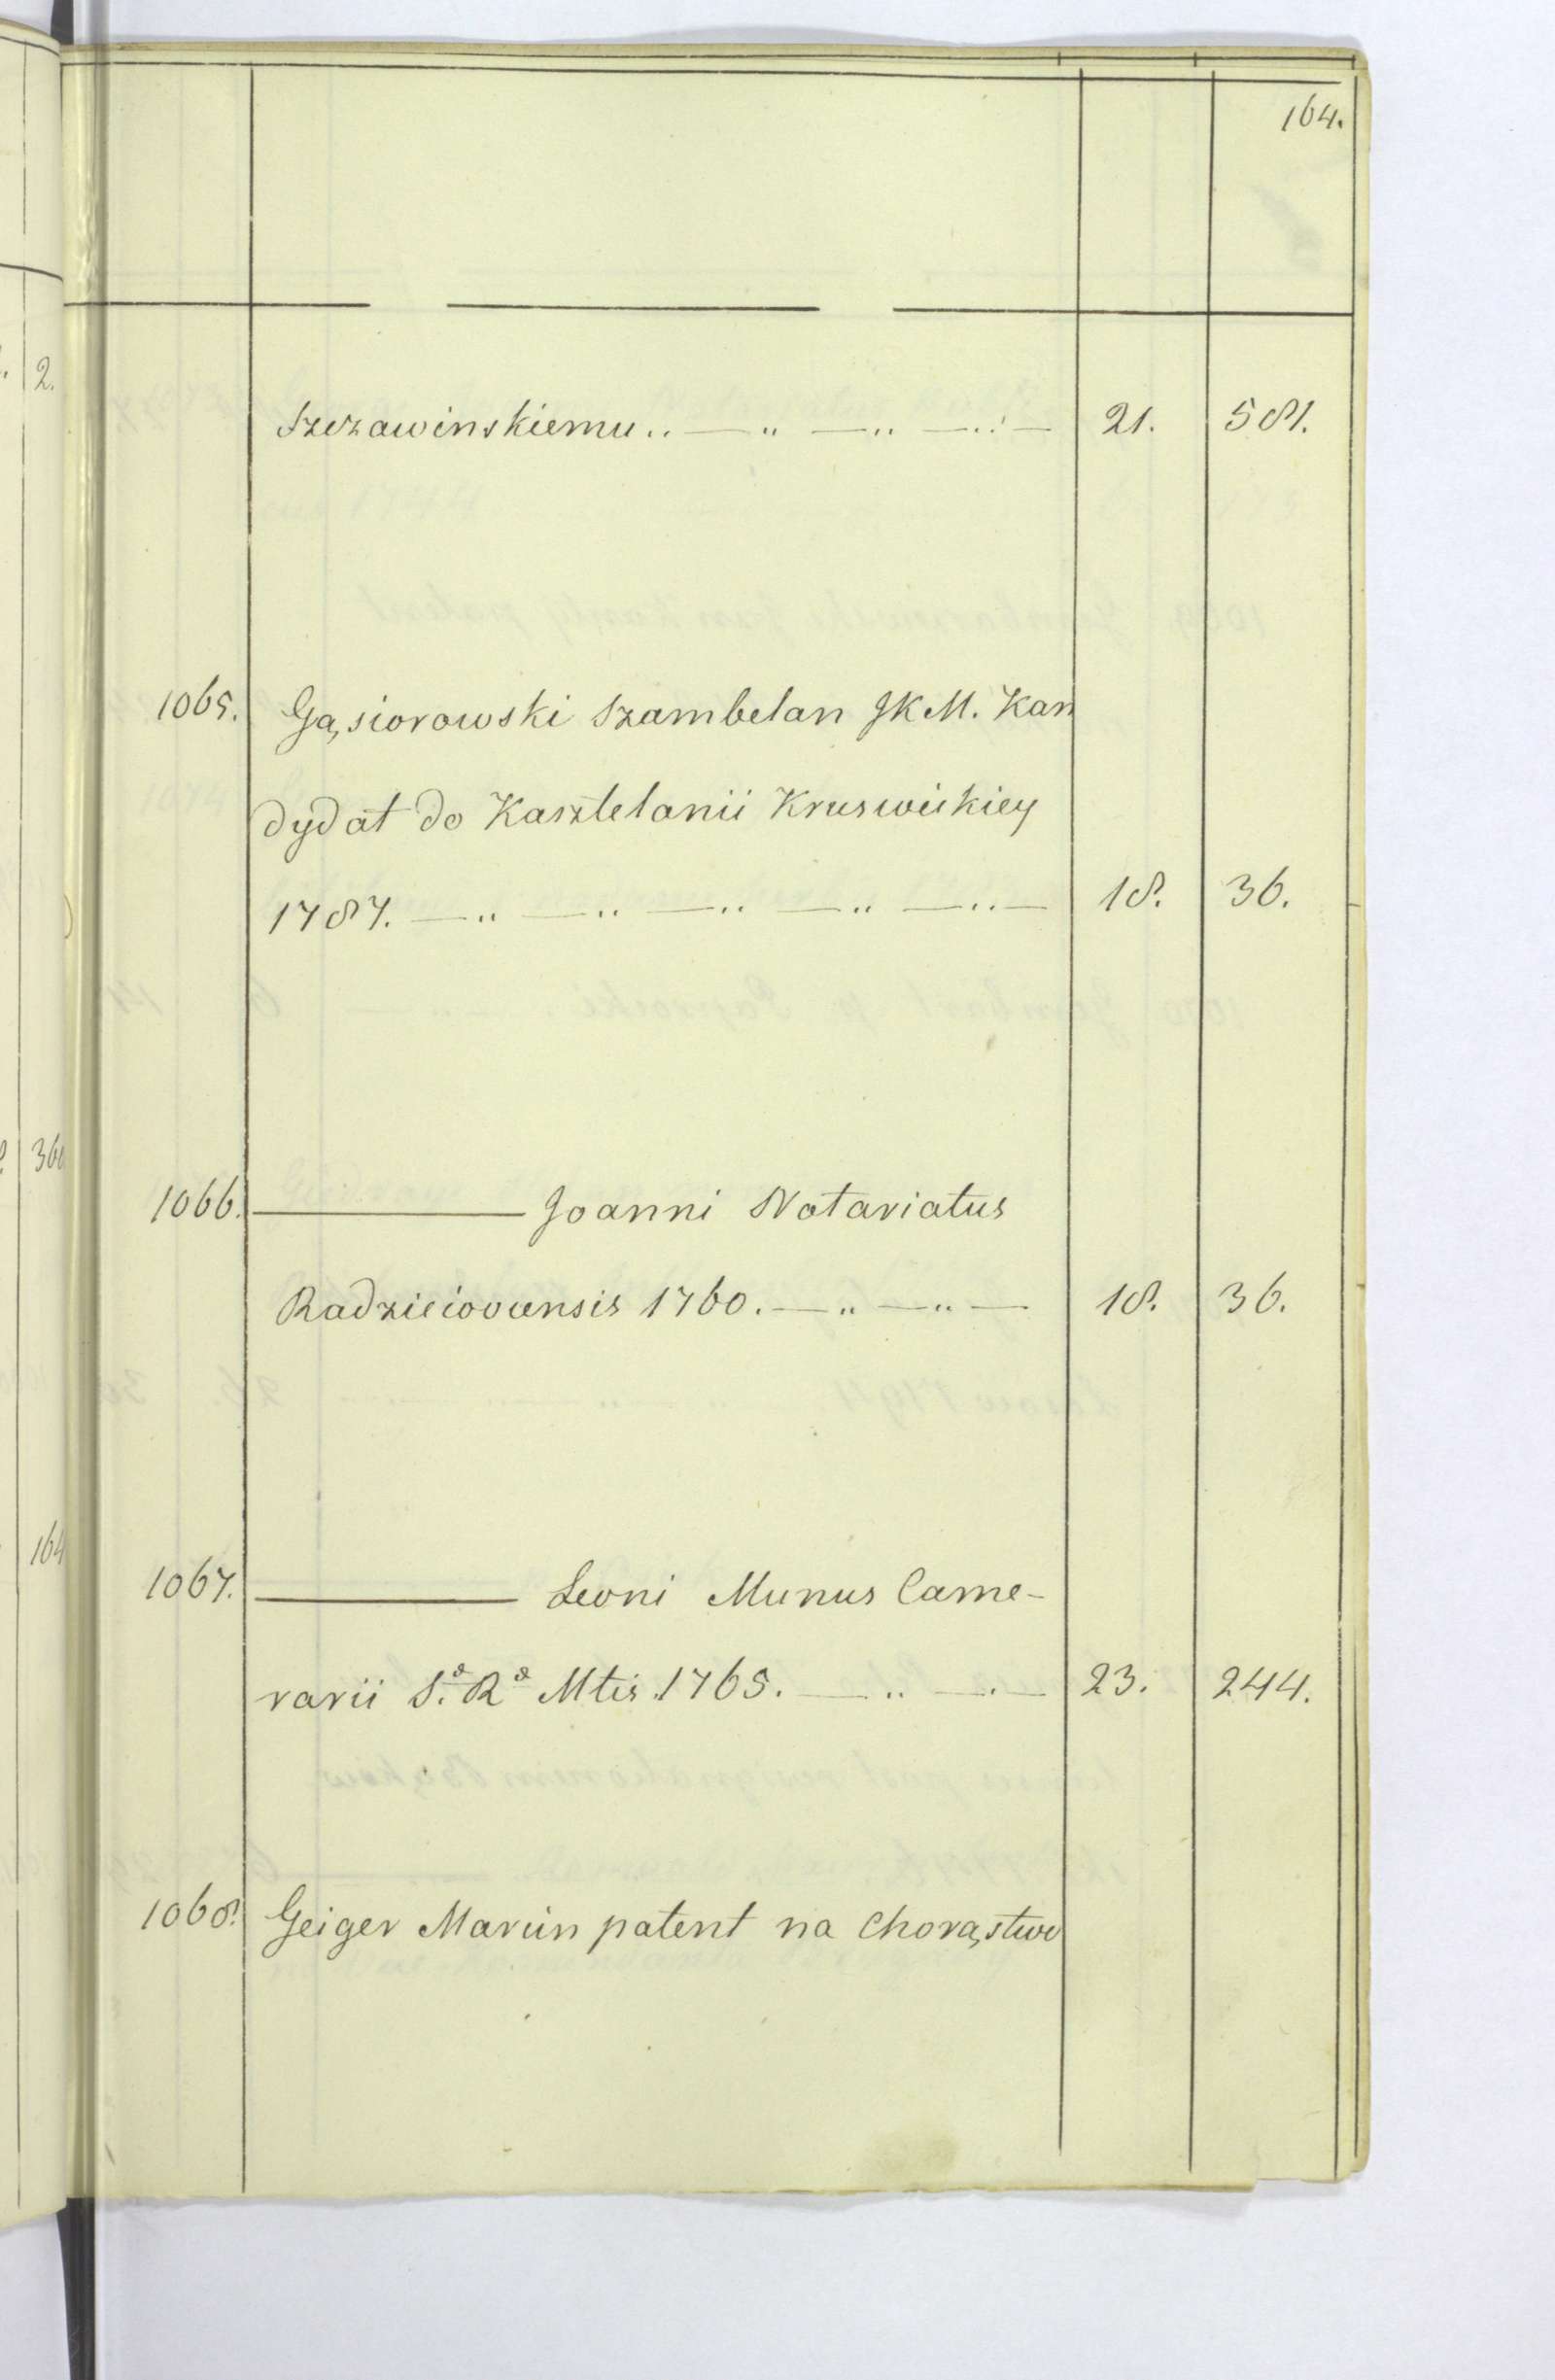 164.
Szczawinskiemu .. — " — " — " — 21. 581.
1065. Gąsiorowski Szambelan JKM. Kan
dydat do Kasztelanii Kruswickiey
1787. — " — " — " — " — " — 18. 36.
1066. ——— Joanni Notariatus
Radzieiovensis 1760. — " — " — 18. 36.
1067. ——— Leoni Munus Came-
rarii S.ᵃ Rᵃ Mtis 1765. — " — " — 23. 244.
1068. Geiger Marcin patent na Chorąstwo